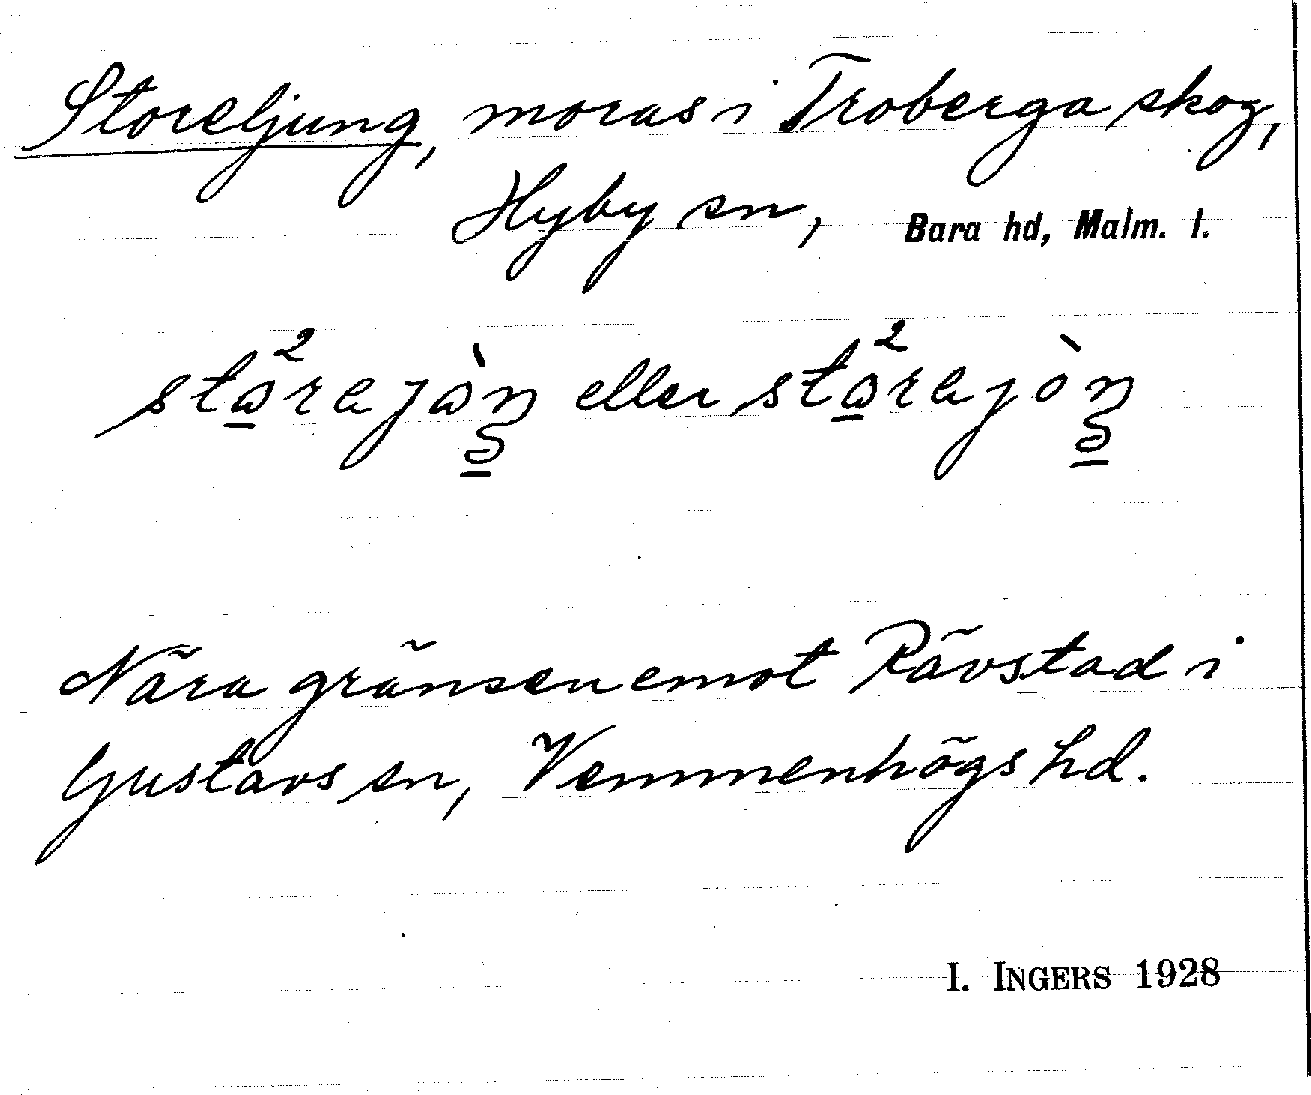 Storeljung, moras i Troberga skog,
Hyby sn, Bara hd, Malm. l.
eller
Nära gränsen emot Rävstad i
Gustavs sn, Vemmenhögs hd.
I. INGERS 1928